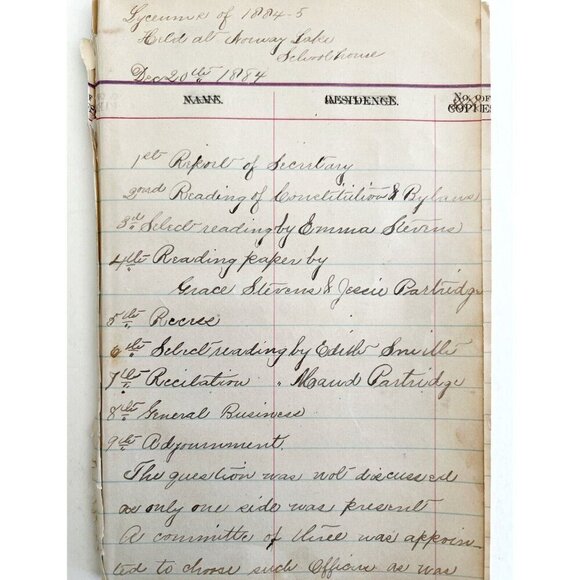 Lyceum of 1884-5
Held at Norway Lake
Schoolhouse
Dec 20th 1884
NAME. RESIDENCE. No. OF COPIES
1st Report of Secretary
2ond Reading of Constitution & Bylaws
3d Select reading by Emma Stevens
4th Reading paper by
Grace Stevens & Jessie Partridge
5th Recess
6th Select reading by Edith
7th Recitation " Maud Partridge
8th General Business
9th Adjournment.
The question was not discussed
as only one side was present
A committe of three was appoin-
ted to choose such Officers as was